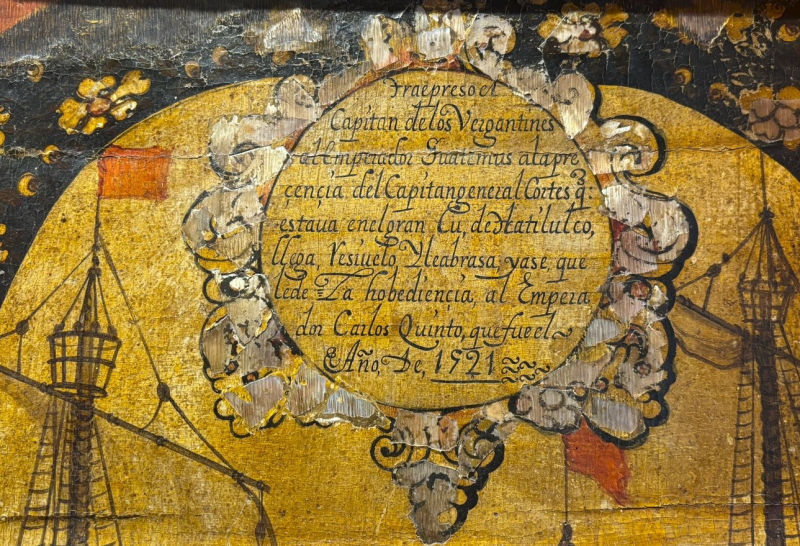 Trae preso el
Capitan de los Vergantines
al Emperador Guatimus ala pre
çençia del Capitan general Cortes q̃
estaua en el gran Cu, de tlatilulco,
llega, Resiuelo Yleabrasa, yase, que
lede La hobediencia, al Empera
dor Carlos Quinto, que fue el
Año De, 1521